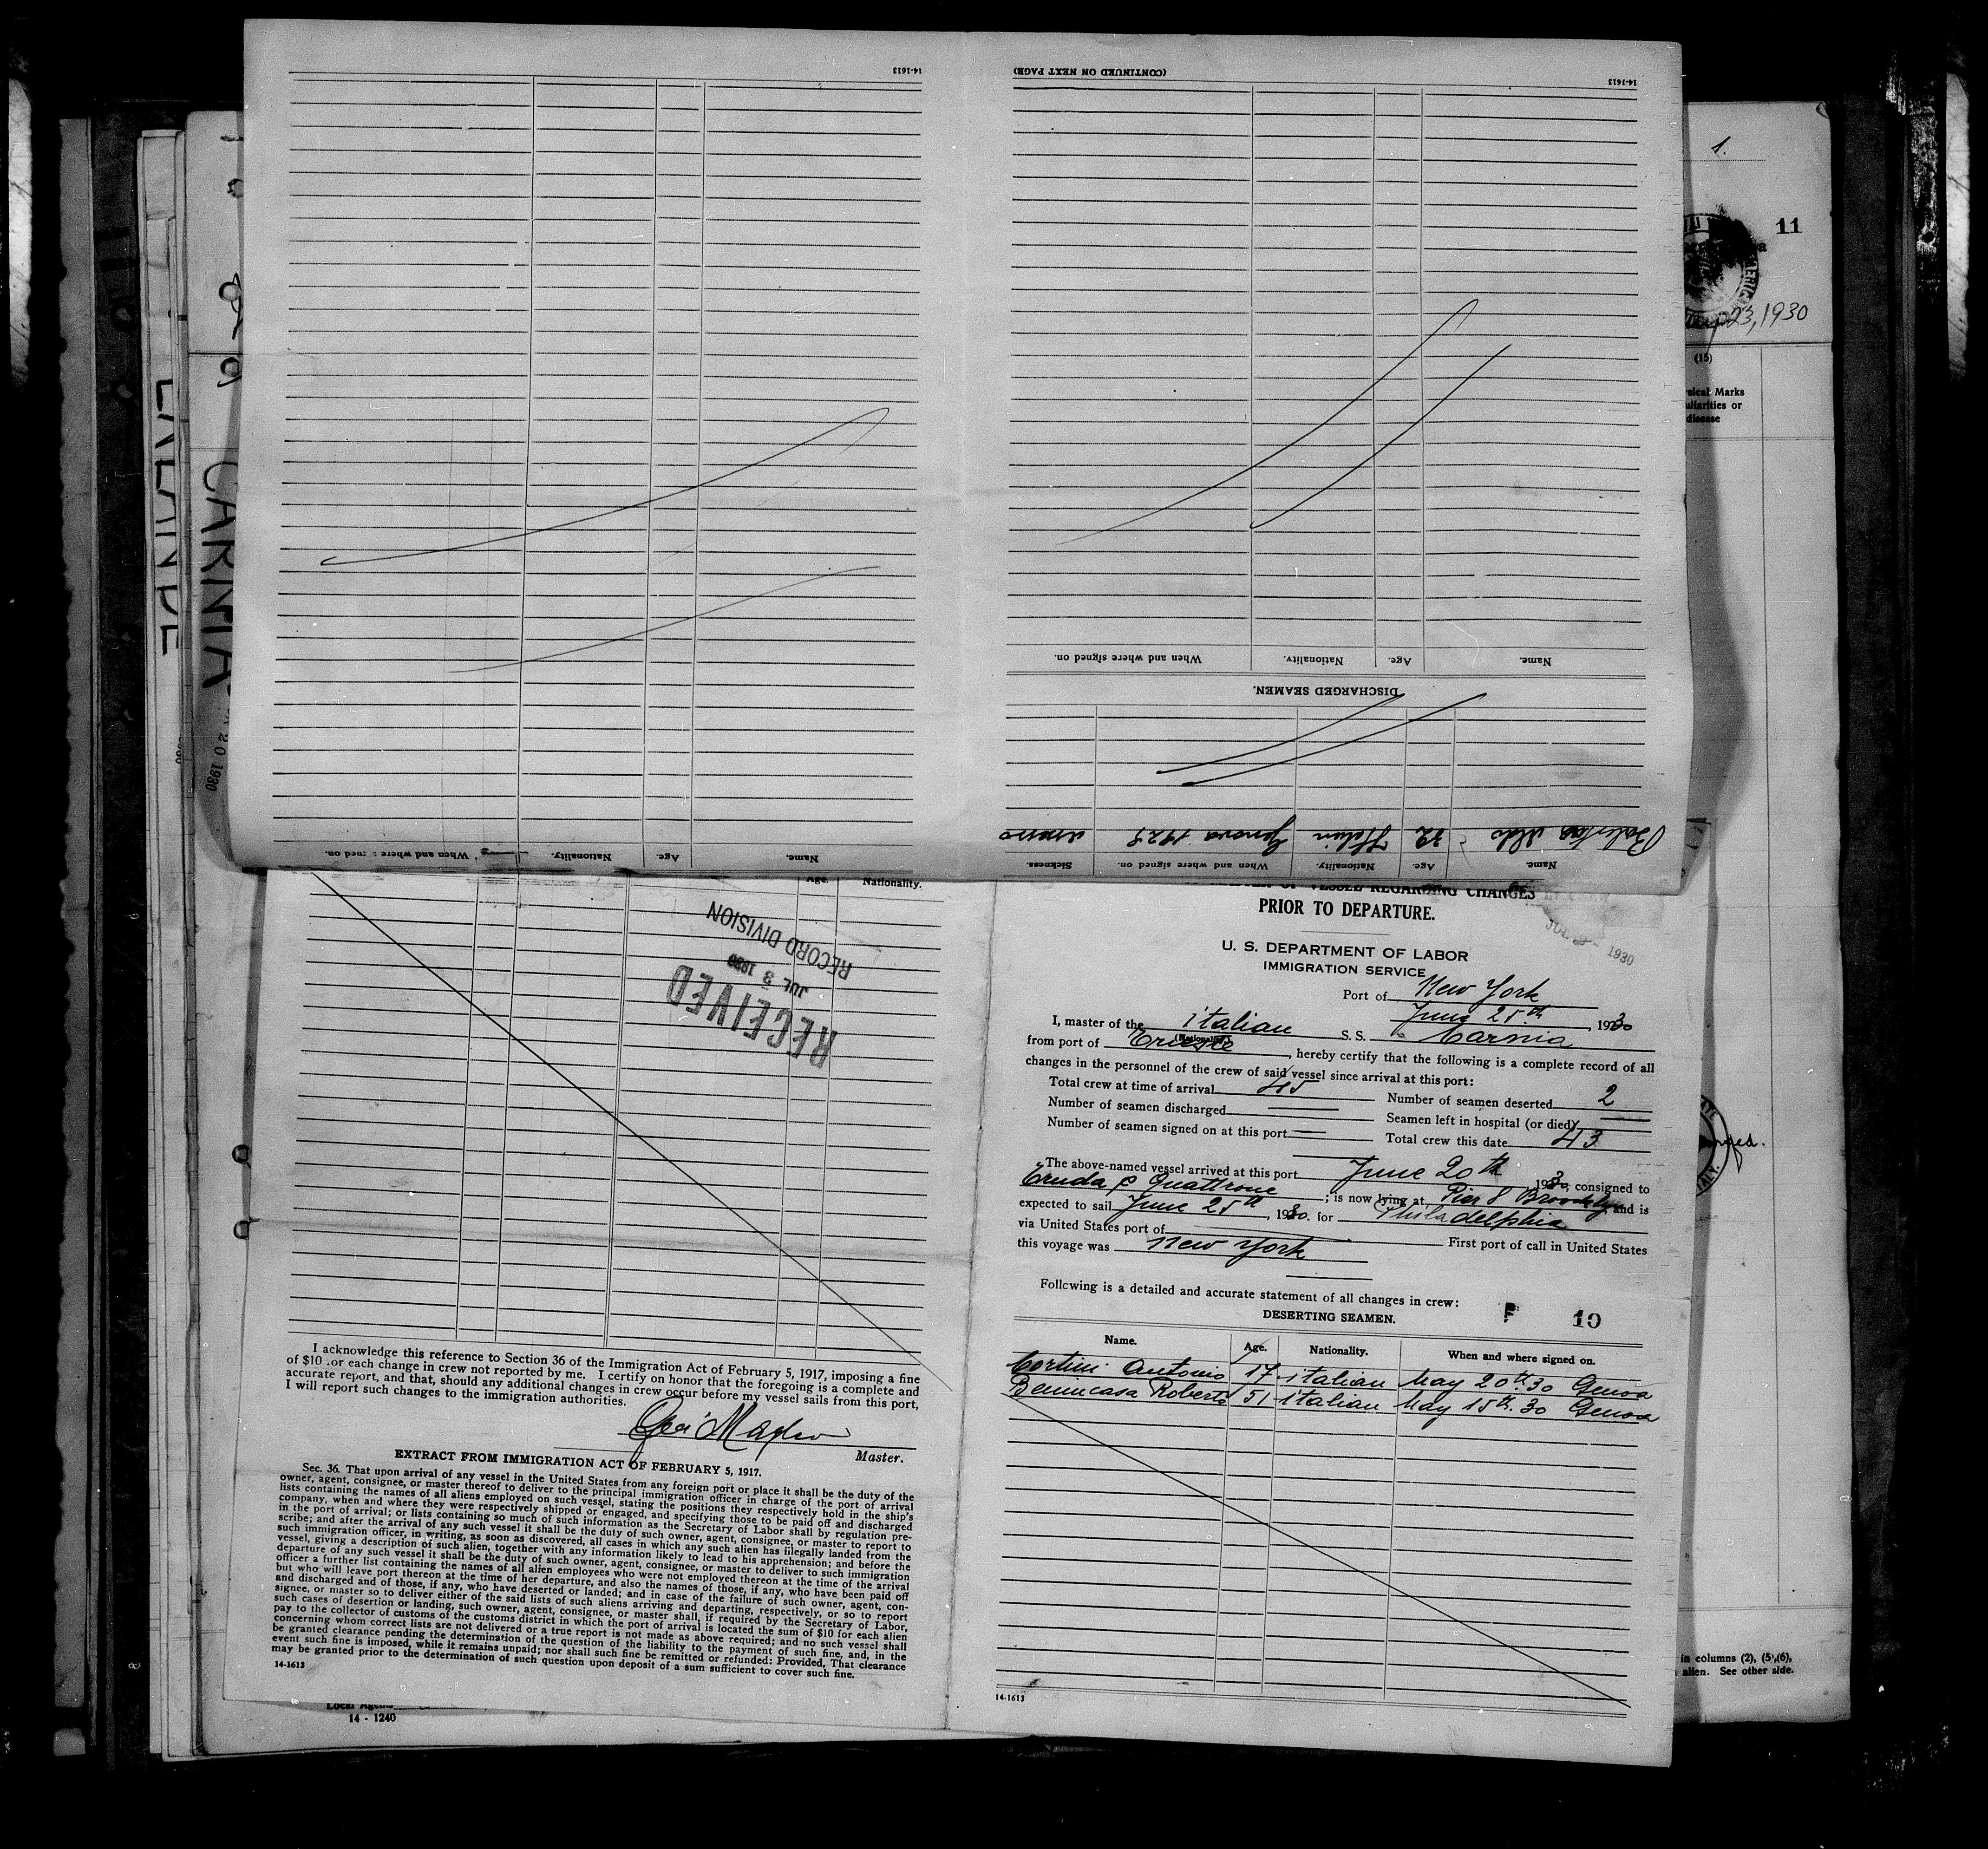 14-1613
(CONTINUED ON NEXT PAGE)
14-1613
When and where signed on.
Nationality.
Age.
Name.
DISCHARGED SEAMEN.
When and where signed on.
Nationality.
Age.
Name.
Aldo 32 Genova 1928
Sickness.
When and where signed on.
Nationality.
Age.
Name.
1.
11
23, 1930
(15)
disease
CARNIA
20 1930
Age. Nationality.
RECORD DIVISION
JUL 3 1930
RECEIVED
OF VESSEL REGARDING CHANGES
PRIOR TO DEPARTURE.
JUL 1930
U. S. DEPARTMENT OF LABOR
IMMIGRATION SERVICE
Port of New York
June 25th, 1930
I, master of the italian S. S. Carnia
(Nationality)
from port of Trieste, hereby certify that the following is a complete record of all
changes in the personnel of the crew of said vessel since arrival at this port:
Total crew at time of arrival 45 Number of seamen deserted 2
Number of seamen discharged Seamen left in hospital (or died)
Number of seamen signed on at this port Total crew this date 43
The above-named vessel arrived at this port June 20th 1930, consigned to
Quattrone; is now lying at Pier 8 Brooklyn and is
expected to sail June 25th, 1930. for Philadelphia
via United States port of First port of call in United States
this voyage was New York
Following is a detailed and accurate statement of all changes in crew:
10
DESERTING SEAMEN.
Name. Age. Nationality. When and where signed on.
Cortini Antonio 17 italian May 20th 30 Genoa
Benincasa Roberto 51 italian May 15th. 30 Genoa
14-1613
I acknowledge this reference to Section 36 of the Immigration Act of February 5, 1917, imposing a fine
of $10 for each change in crew not reported by me. I certify on honor that the foregoing is a complete and
accurate report, and that, should any additional changes in crew occur before my vessel sails from this port,
I will report such changes to the immigration authorities.
Master.
EXTRACT FROM IMMIGRATION ACT OF FEBRUARY 5, 1917.
Sec. 36. That upon arrival of any vessel in the United States from any foreign port or place it shall be the duty of the
owner, agent, consignee, or master thereof to deliver to the principal immigration officer in charge of the port of arrival
lists containing the names of all aliens employed on such vessel, stating the positions they respectively hold in the ship's
company, when and where they were respectively shipped or engaged, and specifying those to be paid off and discharged
in the port of arrival; or lists containing so much of such information as the Secretary of Labor shall by regulation pre-
scribe; and after the arrival of any such vessel it shall be the duty of such owner, agent, consignee, or master to report to
such immigration officer, in writing, as soon as discovered, all cases in which any such alien has illegally landed from the
vessel, giving a description of such alien, together with any information likely to lead to his apprehension; and before the
departure of any such vessel it shall be the duty of such owner, agent, consignee, or master to deliver to such immigration
officer a further list containing the names of all alien employees who were not employed thereon at the time of the arrival
but who will leave port thereon at the time of her departure, and also the names of those, if any, who have been paid off
and discharged and of those, if any, who have deserted or landed; and in case of the failure of such owner, agent, con-
signee, or master so to deliver either of the said lists of such aliens arriving and departing, respectively, or so to report
such cases of desertion or landing, such owner, agent, consignee, or master shall, if required by the Secretary of Labor,
pay to the collector of customs of the customs district in which the port of arrival is located the sum of $10 for each alien
concerning whom correct lists are not delivered or a true report is not made as above required; and no such vessel shall
be granted clearance pending the determination of the question of the liability to the payment of such fine, and, in the
event such fine is imposed, while it remains unpaid; nor shall such fine be remitted or refunded: Provided, That clearance
may be granted prior to the determination of such question upon deposit of a sum sufficient to cover such fine.
14-1613
Local Agent
14 - 1240
in columns (2), (5), (6),
alien. See other side.